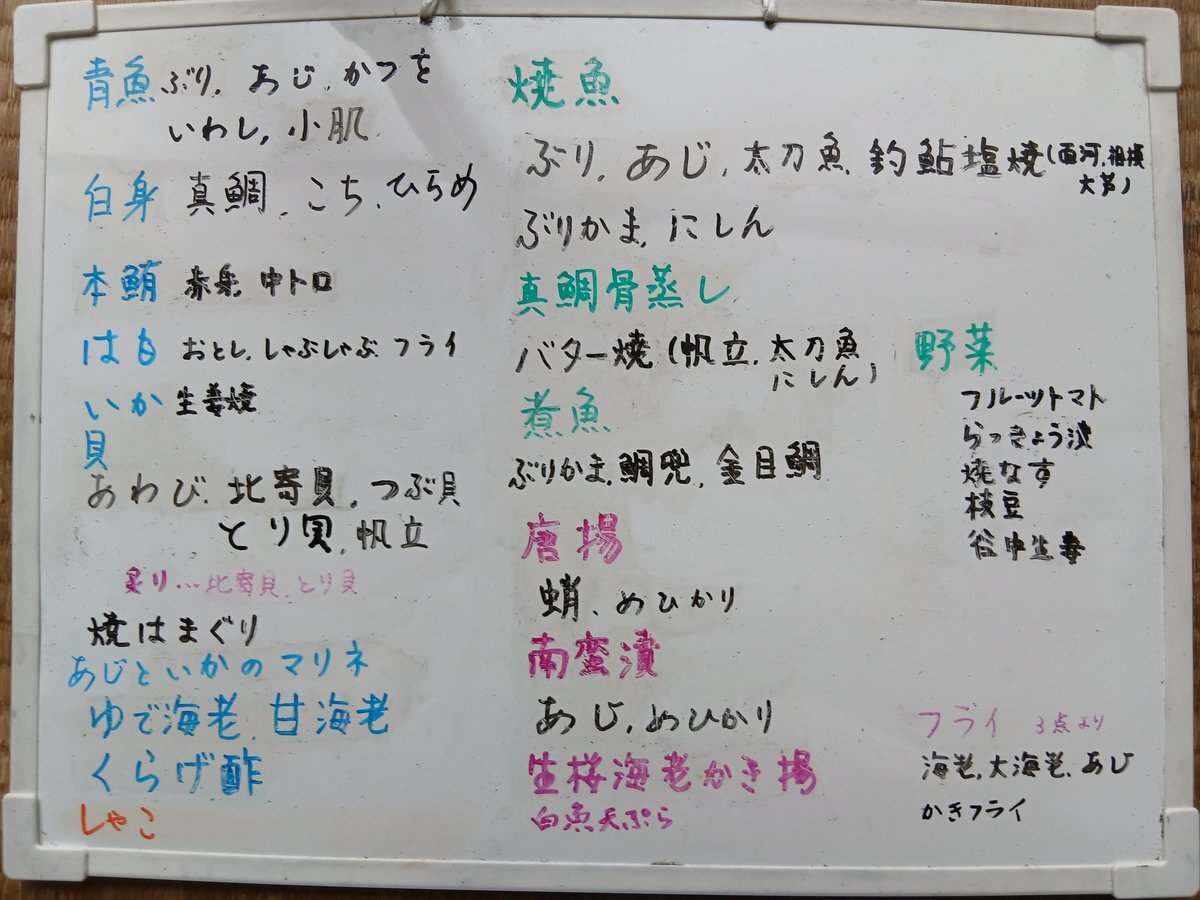 青魚 ぶり、あじ、かつを
いわし、小肌
白身 真鯛、こち、ひらめ
本鮪 赤身 中トロ
はも おとし、しゃぶしゃぶ、フライ
いか 生姜焼
貝
あわび、北寄貝、つぶ貝
とり貝、帆立
炙り…北寄貝、とり貝
焼はまぐり
あじといかのマリネ
ゆで海老、甘海老
くらげ酢
しゃこ
焼魚
ぶり、あじ、太刀魚、釣鮎塩焼(面河、相模
大芦)
ぶりかま、にしん
真鯛骨蒸し
バター焼(帆立、太刀魚
にしん)
煮魚
ぶりかま、鯛兜、金目鯛
唐揚
蛸、めひかり
南蛮漬
あじ、めひかり
生桜海老かき揚
白魚天ぷら
野菜
フルーツトマト
らっきょう漬
焼なす
枝豆
谷中生姜
フライ 3点より
海老、大海老、あじ
かきフライ